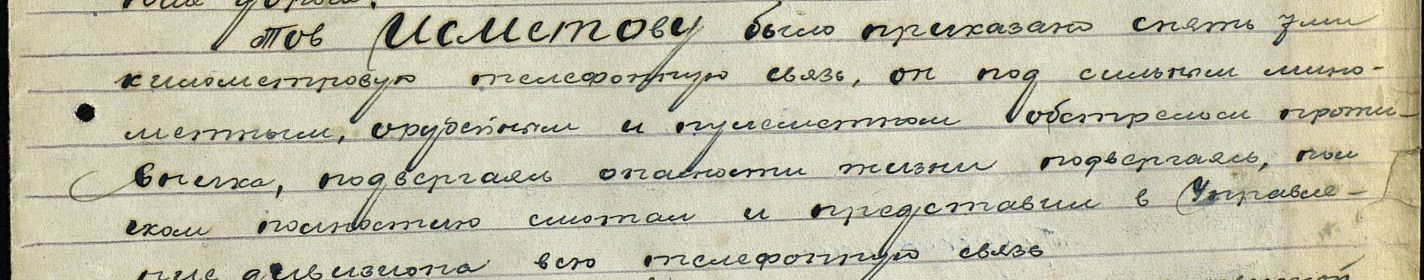 Тов Исметову было приказано снять 7 ми
километровую телефонную связь, он под сильным мино-
метным, орудейным и пулеметном обстрелом проти-
вника, подвергаясь опасности жизни подвергаясь,
ском полностью смотал и представил в Управле-
ние дивизиона всю телефонную связь